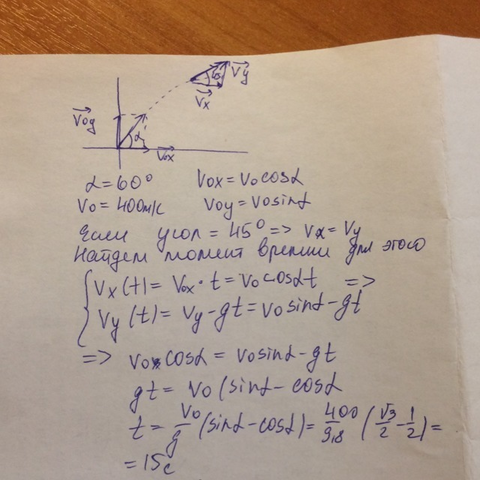 Vy
Vx
Voy
α
Vox
α=60° Vox=Vocosα
Vo=400м/с Voy=Vosinα
Если угол = 45° => Vx=Vy
Найдем момент времени для этого
Vx(t)=Vox·t=Vocosαt =>
Vy(t)=Vy-gt=Vosinα-gt
=> Vox cosα=Vosinα-gt
gt=Vo(sinα-cosα
t=Vo/g(sinα-cosα)=400/9,8(√3/2-1/2)=
=15с